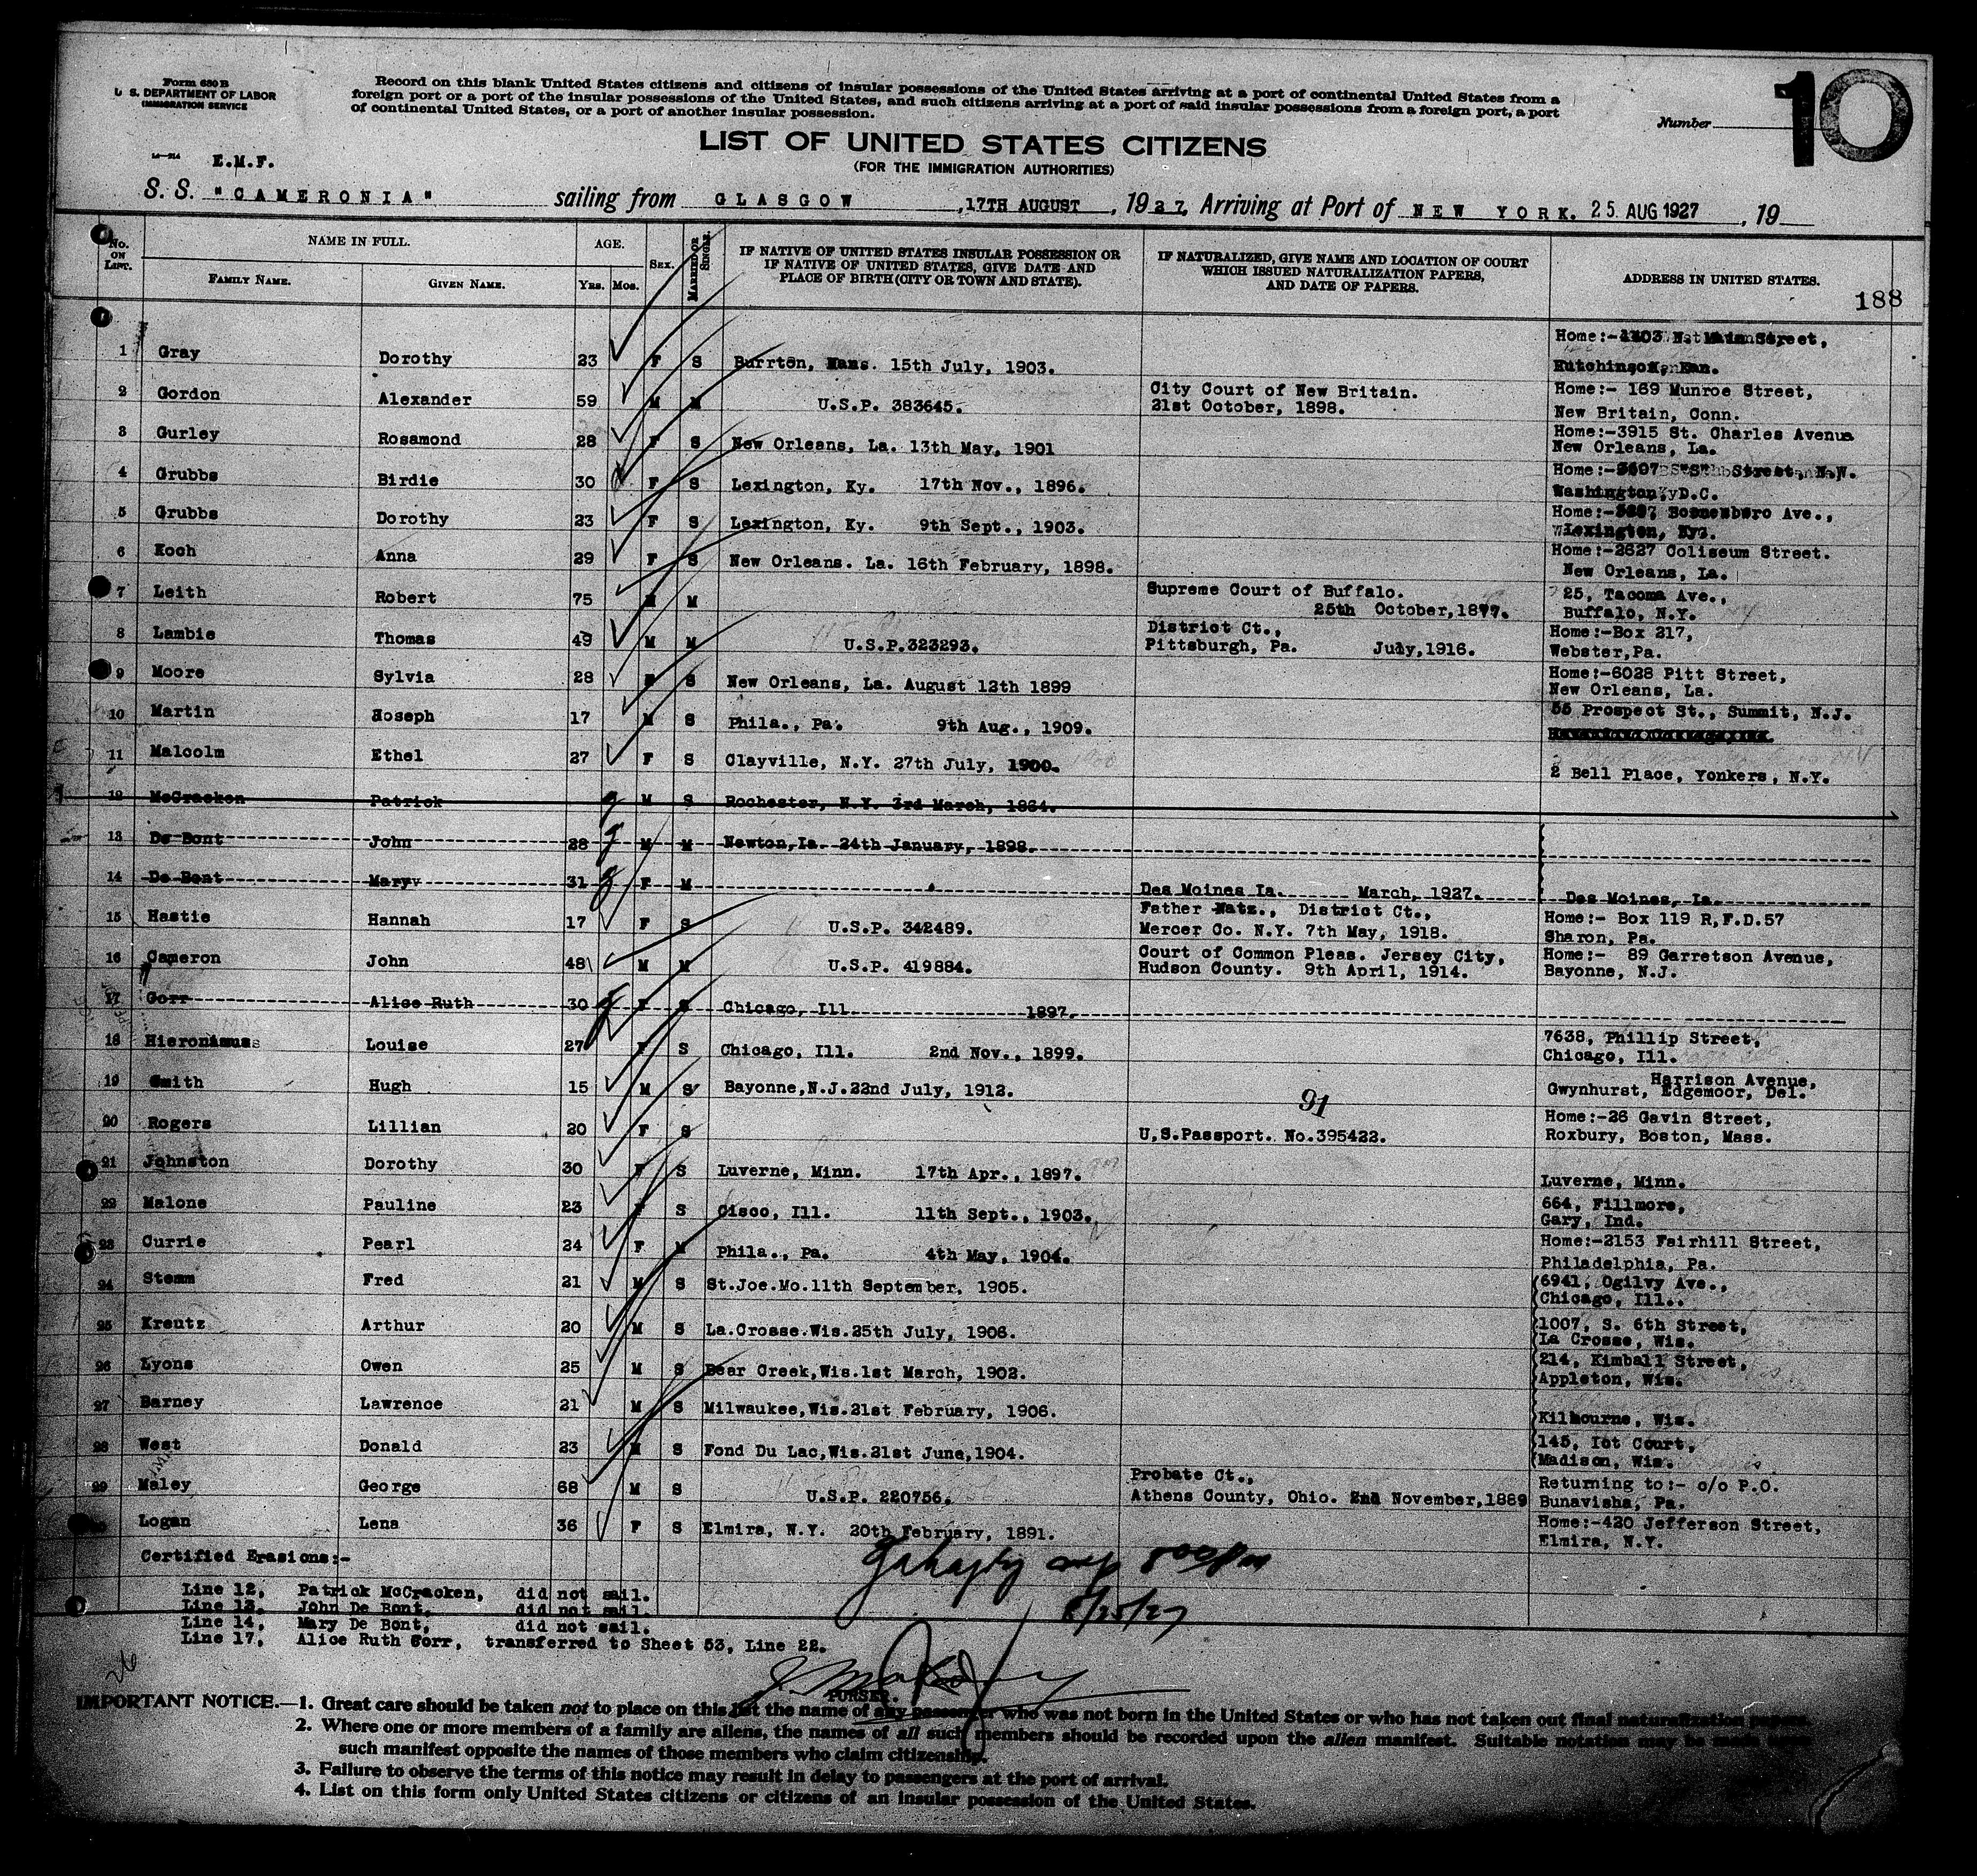 Form 630 B
U. S. DEPARTMENT OF LABOR
IMMIGRATION SERVICE
Record on this blank United States citizens and citizens of insular possessions of the United States arriving at a port of continental United States from a
foreign port or a port of the insular possessions of the United States, and such citizens arriving at a port of said insular possessions from a foreign port, a port
of continental United States, or a port of another insular possession.
Number
10
LIST OF UNITED STATES CITIZENS
(FOR THE IMMIGRATION AUTHORITIES)
E.M.F.
S. S. "CAMERONIA" sailing from GLASGOW, 17TH AUGUST, 1927, Arriving at Port of NEW YORK. 25 AUG 1927, 19
No. ON LIST. NAME IN FULL. AGE. SEX. MARRIED OR SINGLE. IF NATIVE OF UNITED STATES INSULAR POSSESSION OR IF NATIVE OF UNITED STATES, GIVE DATE AND PLACE OF BIRTH (CITY OR TOWN AND STATE). IF NATURALIZED, GIVE NAME AND LOCATION OF COURT WHICH ISSUED NATURALIZATION PAPERS, AND DATE OF PAPERS. ADDRESS IN UNITED STATES.
FAMILY NAME. GIVEN NAME. YRS. MOS.
188
1 Gray Dorothy 23 F S Burrton, Kans. 15th July, 1903. Home:- Street,
2 Gordon Alexander 59 M M U.S.P. 383645. City Court of New Britain. 21st October, 1898. Home:- 169 Munroe Street, New Britain, Conn.
3 Gurley Rosamond 28 F S New Orleans, La. 13th May, 1901 Home:-3915 St. Charles Avenue New Orleans, La.
4 Grubbs Birdie 30 F S Lexington, Ky. 17th Nov., 1896. Home:- Street, N.W. Washington, D.C.
5 Grubbs Dorothy 23 F S Lexington, Ky. 9th Sept., 1903. Home:- Ave., Lexington, Ky.
6 Koch Anna 29 F S New Orleans. La. 16th February, 1898. Home:-2627 Coliseum Street. New Orleans, La.
7 Leith Robert 75 M M Supreme Court of Buffalo. 25th October, 1877. 25, Tacoma Ave., Buffalo, N.Y.
8 Lambie Thomas 49 M M U.S.P.323293. District Ct., Pittsburgh, Pa. July, 1916. Home:-Box 217, Webster, Pa.
9 Moore Sylvia 28 F S New Orleans, La. August 12th 1899 Home:-6028 Pitt Street, New Orleans, La.
10 Martin Joseph 17 M S Phila., Pa. 9th Aug., 1909. 55 Prospect St., Summit, N.J.
11 Malcolm Ethel 27 F S Clayville, N.Y. 27th July, 1900. 2 Bell Place, Yonkers, N.Y.
12 McCracken Patrick M S Rochester, N.Y. 3rd March, 1864.
13 De Bont John 28 M M Newton, Ia. 24th January, 1898.
14 De Bont Mary 31 F M Des Moines Ia. March, 1927. Des Moines, Ia.
15 Hastie Hannah 17 F S U.S.P. 342489. Father Natz., District Ct., Mercer Co. N.Y. 7th May, 1918. Home:- Box 119 R,F.D.57 Sharon, Pa.
16 Cameron John 48 M M U.S.P. 419884. Court of Common Pleas. Jersey City, Hudson County. 9th April, 1914. Home:- 89 Garretson Avenue, Bayonne, N.J.
17 Gorr Alice Ruth 30 F S Chicago, Ill 1897.
18 Hieronimus Louise 27 F S Chicago, Ill. 2nd Nov., 1899. 7638, Phillip Street, Chicago, Ill.
19 Smith Hugh 15 M S Bayonne,N.J.22nd July, 1912. Harrison Avenue, Gwynhurst, Edgemoor, Del.
91
20 Rogers Lillian 20 F S U,S.Passport. No.395422. Home:-26 Gavin Street, Roxbury, Boston, Mass.
21 Johnston Dorothy 30 F S Luverne, Minn. 17th Apr., 1897. Luverne, Minn.
22 Malone Pauline 23 F S Cisco, Ill. 11th Sept., 1903. 664, Fillmore, Gary, Ind.
23 Currie Pearl 24 F M Phila., Pa. 4th May, 1904. Home:-2153 Fairhill Street, Philadelphia, Pa.
24 Stemm Fred 21 M S St.Joe.Mo.11th September, 1905. 6941, Ogilvy Ave., Chicago, Ill.
25 Krentz Arthur 20 M S La.Crosse.Wis.25th July, 1906. 1007, S. 6th Street, La Crosse, Wis.
26 Lyons Owen 25 M S Bear Creek,Wis.1st March, 1902. 214, Kimball Street, Appleton, Wis.
27 Barney Lawrence 21 M S Milwaukee,Wis.21st February, 1906. Kilbourne, Wis.
28 West Donald 23 M S Fond Du Lac,Wis.21st June,1904. 145, Iot Court, Madison, Wis.
29 Maley George 68 M S U.S.P. 220756. Probate Ct., Athens County, Ohio. 2nd November, 1889 Returning to:- c/o P.O. Bunavisha, Pa.
Logan Lena 36 F S Elmira, N.Y. 20th February, 1891. Home:-420 Jefferson Street, Elmira, N.Y.
Certified Erasions:-
Line 12, Patrick McCracken, did not sail.
Line 13, John De Bont, did not sail.
Line 14, Mary De Bont, did not sail.
Line 17, Alice Ruth Gorr, transferred to Sheet 53, Line 22.
8/25/27
26
PURSER.
IMPORTANT NOTICE.—1. Great care should be taken not to place on this list the name of any passenger who was not born in the United States or who has not taken out final naturalization papers.
2. Where one or more members of a family are aliens, the names of all such members should be recorded upon the alien manifest. Suitable notation may be made upon
such manifest opposite the names of those members who claim citizenship.
3. Failure to observe the terms of this notice may result in delay to passengers at the port of arrival.
4. List on this form only United States citizens or citizens of an insular possession of the United States.